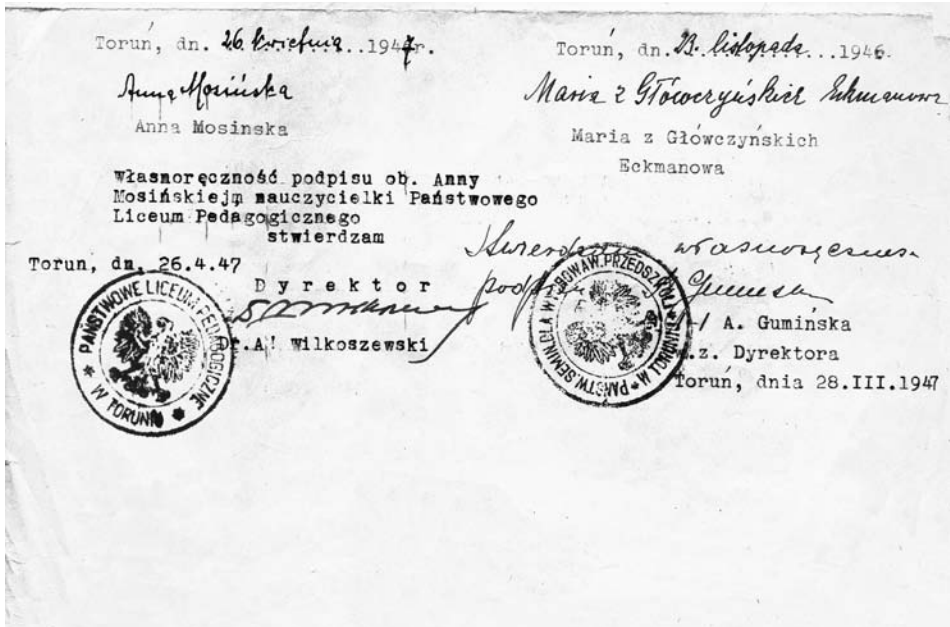 Toruń, dn. 26. kwietnia..1947r.
Anna Mosińska
Anna Mosinska
Własnoręczność podpisu ob. Anny
Mosińskiejm nauczycielki Państwowego
Liceum Pedagogicznego
stwierdzam
Toruń, dn. 26.4.47
Dyrektor
Dr.A! Wilkoszewski
PAŃSTWOWE LICEUM PEDAGOGICZNE
* W TORUNIU *
Toruń, dn. 23. listopada....1946.
Maria z Główczyńskich Eckmanowa
Maria z Główczyńskich
Eckmanowa
Stwierdzam własnoręczność
podpisu Gumińska
-/ A. Gumińska
w.z. Dyrektora
Toruń, dnia 28.III.1947
PAŃSTW. SEMIN. DLA WYCHOWAW. PRZEDSZKOLI * W TORUNIU *